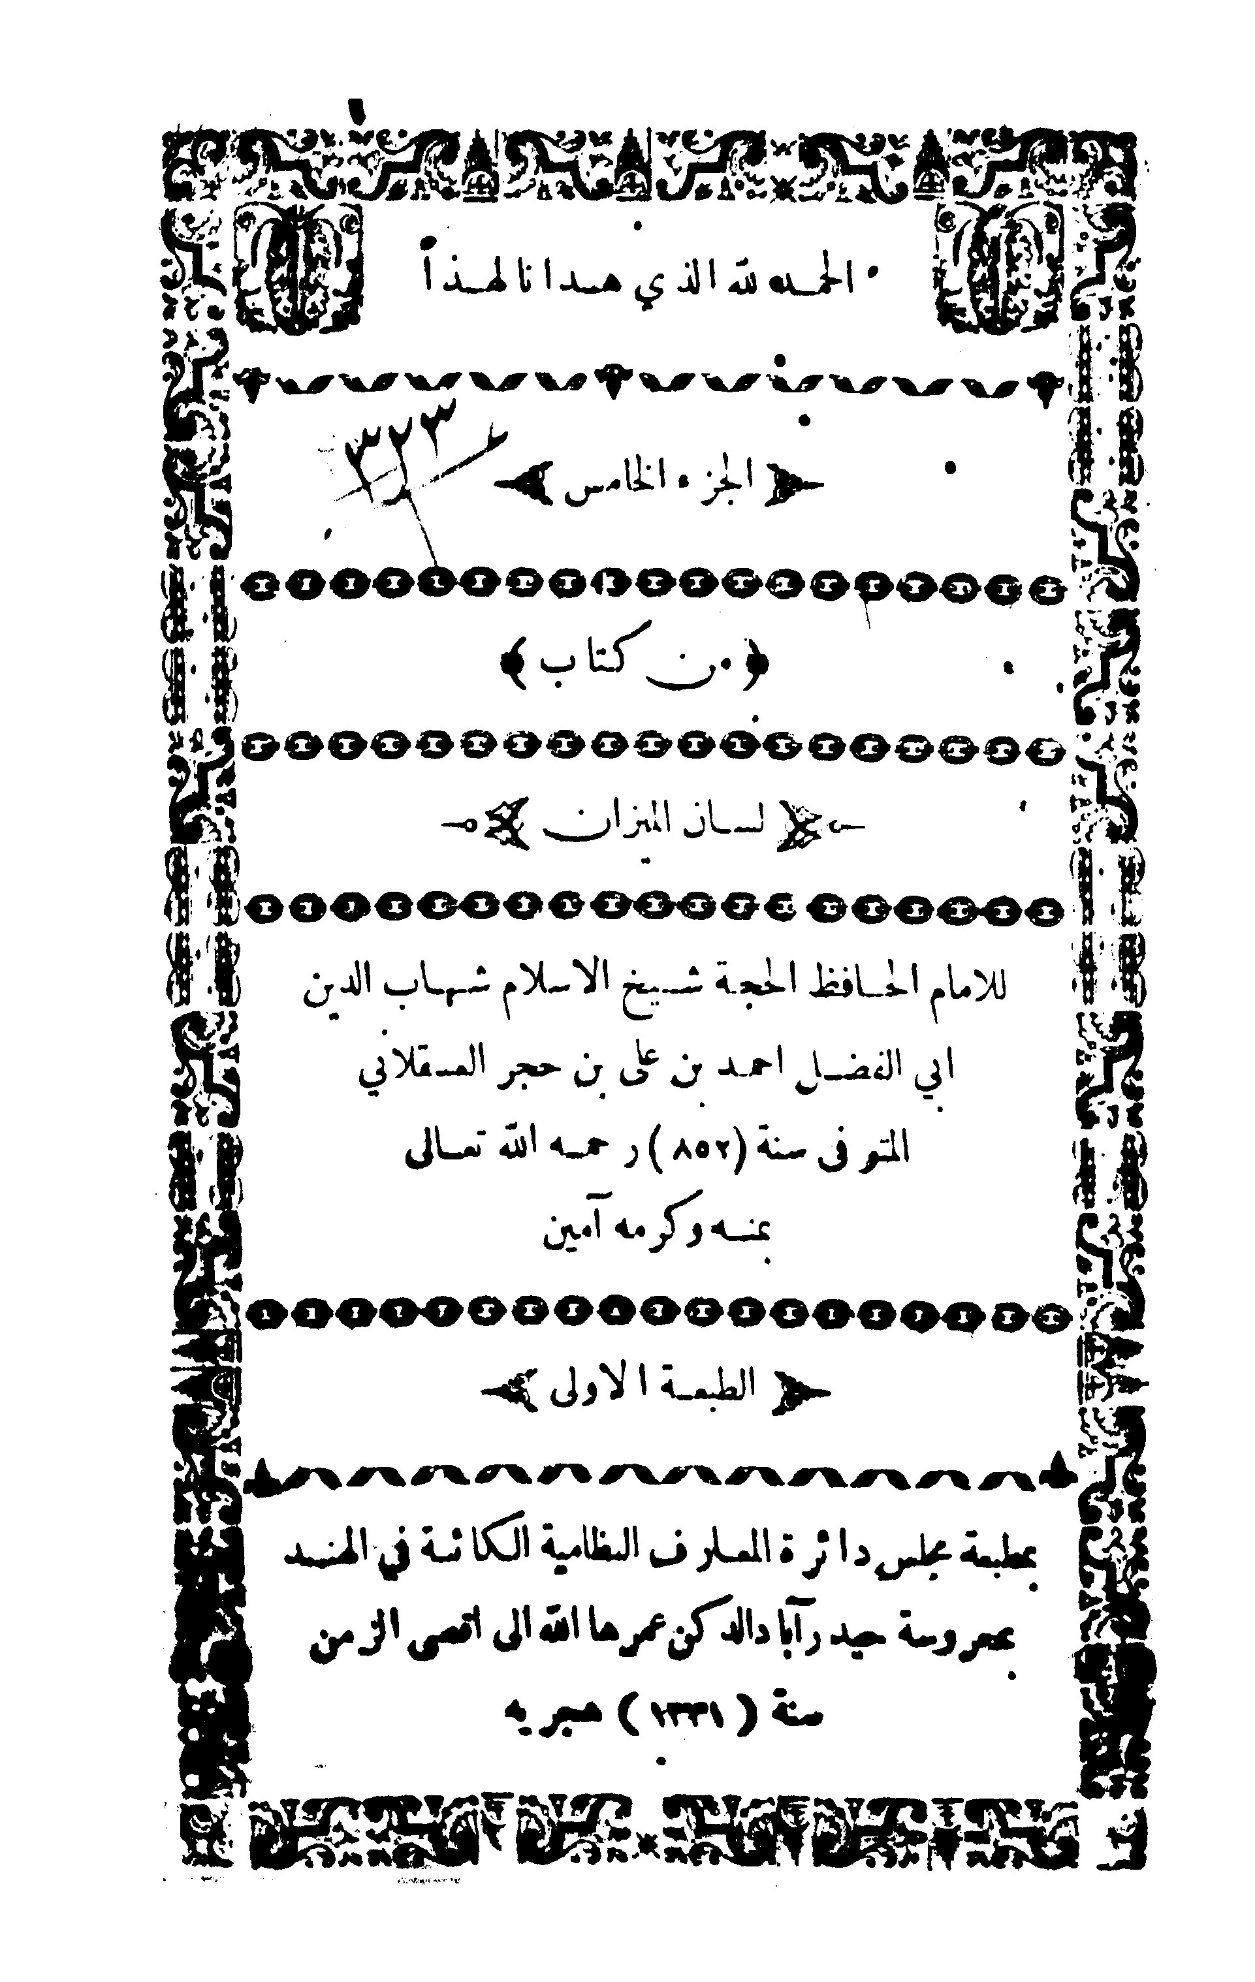 الحمد لله الذي هدانا لهذا
٣٢٣
الجزء الخامس
﴿من كتاب﴾
لسان الميزان
للامام الحافظ الحجة شيخ الاسلام شهاب الدين
ابي الفضل احمد بن على بن حجر العسقلاني
المتوفى سنة (٨٥٢) رحمه الله تعالى
بمنه وكرمه آمين
الطبعة الاولى
بمطبعة مجلس دائرة المعارف النظامية الكائنة في الهند
بمحروسة حيدرآباد الدكن عمرها الله الى اقصى الزمن
سنة (١٣٣١) هجريه